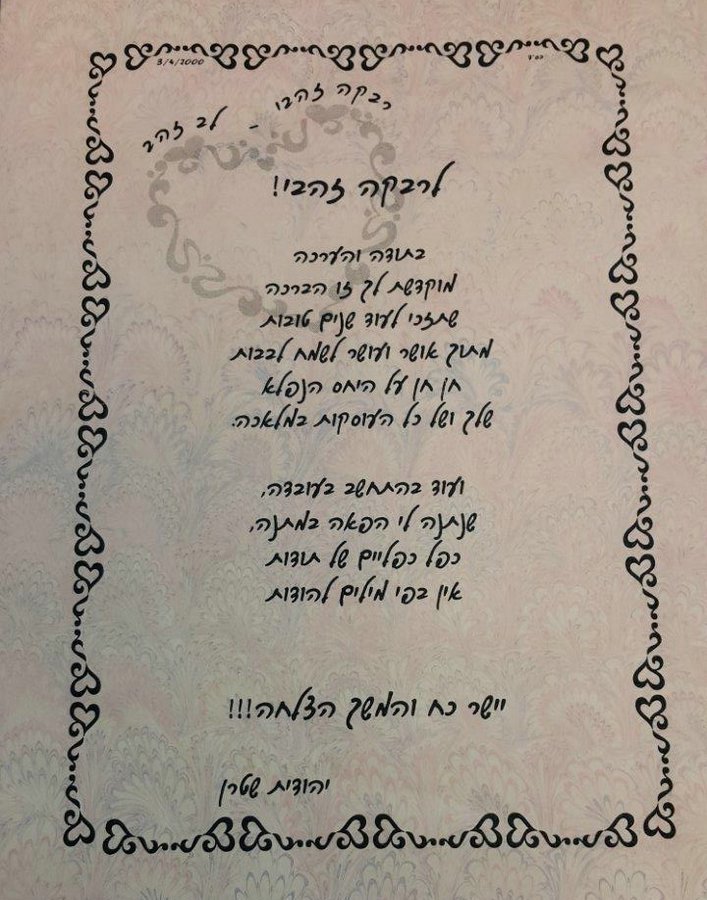 בס"ד
3/4/2000
רבקה זהבי - לב זהב
לרבקה זהבי!
בתודה והערכה
מוקדשת לך זו הברכה
שתזכי לעוד שנים טובות
מתוך אושר ועושר לשמח לבבות
חן חן על היחס הנפלא
שלך ושל כל העוסקות במלאכה.
ועוד בהתחשב בעובדה,
שנתנה לי הפאה במתנה,
כפל כפליים של תודות
אין בפי מילים להודות
יישר כח והמשך הצלחה!!!
יהודית שטרן